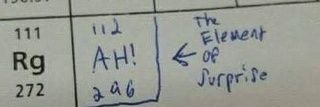 111
Rg
272
112
AH!
2a6
← The
Element
Of
Surprise